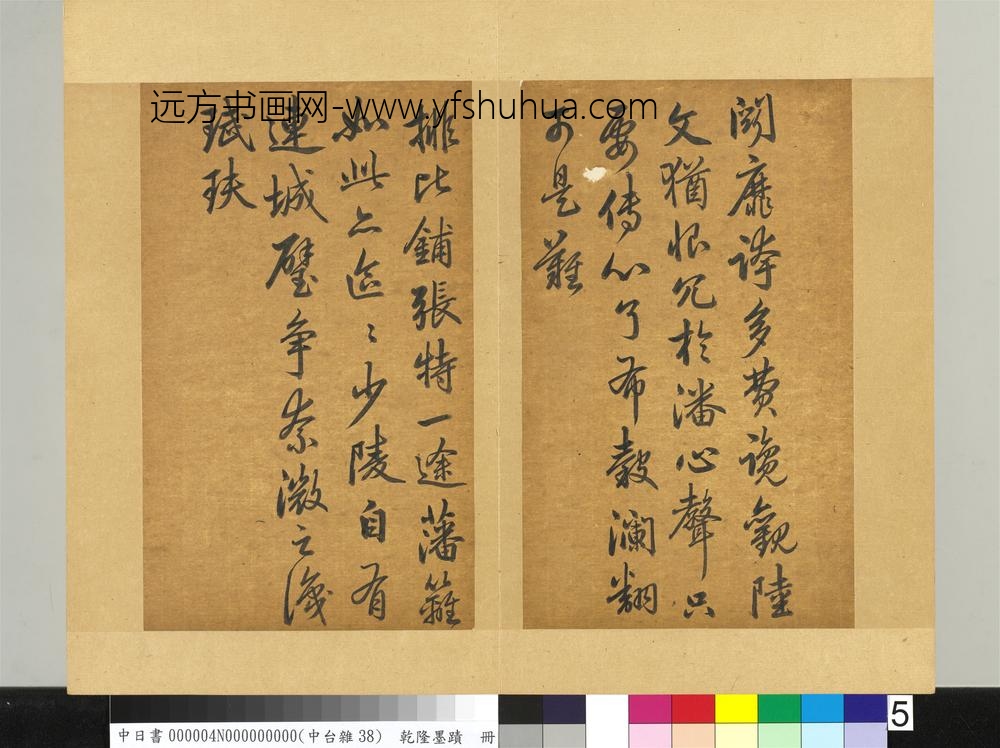 远方书画网-www.yfshuhua.com
鬭靡誇多費覽觀陸
文猶恨冗於潘心聲只
要傳心了布穀瀾翻
可是難
排比鋪張特一途藩籬
如此亦區〻少陵自有
連城璧争奈微之識
珷玞
中日書 000004N000000000(中台雜 38) 乾隆墨蹟 冊
5